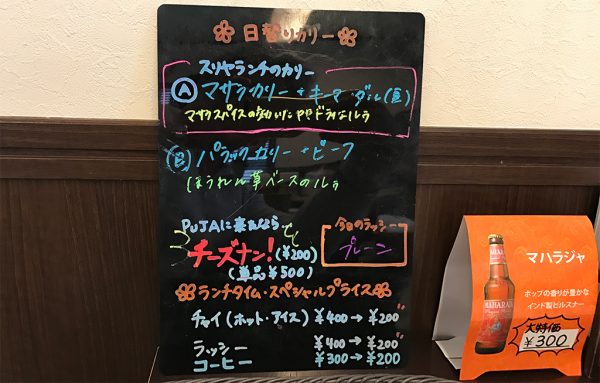 日替りカリー
スリヤランチのカリー
Ⓐ マサラカリー + キーマ・ダル(豆)
マサラスパイスの効いたややドライなルゥ
Ⓑ パラックカリー + ビーフ
ほうれん草ベースのルゥ
PUJAに来たなら
チーズナン!(¥200)
(単品¥500)
今日のラッシー
プレーン
ランチタイム・スペシャルプライス
チャイ(ホット・アイス) ¥400→¥200
ラッシー ¥400→¥200
コーヒー ¥300→¥200
マハラジャ
ホップの香りが豊かな
インド製ピルスナー
MAHARAJA
大特価
¥300